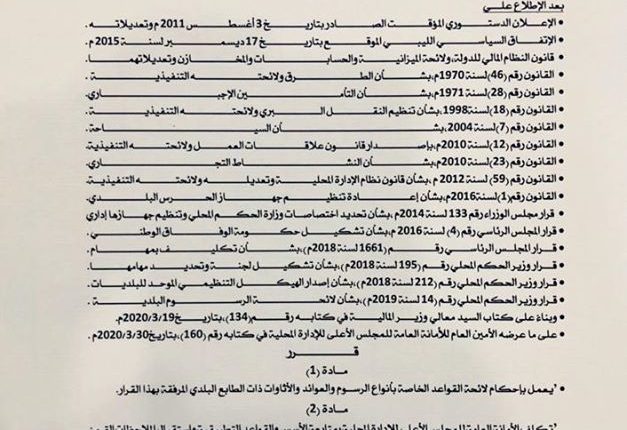 بعد الإطلاع على
• الإعلان الدستوري المؤقت الصادر بتاريخ 3 أغسطس 2011 م وتعديلاته.
• الإتفاق السياسي الليبي الموقع بتاريخ 17 ديسمبر لسنة 2015 م.
• قانون النظام المالي للدولة، ولائحة الميزانية والحسابات والمخازن وتعديلاتهما.
• القانون رقم (46) لسنة 1970م، بشأن الطرق ولائحته التنفيذية.
• القانون رقم (28) لسنة 1971م، بشأن التأمين الإجباري.
• القانون رقم (18) لسنة 1998، بشأن تنظيم النقل البري ولائحته التنفيذية.
• القانون رقم (7) لسنة 2004، بشأن السياحة.
• القانون رقم (12) لسنة 2010م، بإصدار قانون علاقات العمل ولائحته التنفيذية.
• القانون رقم (23) لسنة 2010م، بشأن النشاط التجاري.
• القانون رقم (59) لسنة 2012 م، بشأن قانون نظام الإدارة المحلية وتعديله ولائحته التنفيذية.
• القانون رقم (1) لسنة 2016م، بشأن إعادة تنظيم جهاز الحرس البلدي.
• قرار مجلس الوزراء رقم 133 لسنة 2014م، بشأن تحديد اختصاصات وزارة الحكم المحلي وتنظيم جهازها إداري
• قرار المجلس الرئاسي رقم (4) لسنة 2016 م، بشأن تشكيل حكومة الوفاق الوطني.
• قرار المجلس الرئاسي رقم (1661 لسنة 2018م)، بشأن تكليف بمهام.
• قرار وزير الحكم المحلي رقم (195 لسنة 2018م)، بشأن تشكيل لجنة وتحديد مهامها.
• قرار وزير الحكم المحلي رقم (212 لسنة 2018م)، بشأن إصدار الهيكل التنظيمي الموحد للبلديات.
• قرار وزير الحكم المحلي رقم (14 لسنة 2019م)، بشأن لائحة الرسوم البلدية.
• وبناءً على كتاب السيد معالي وزير المالية في كتابه رقم (134)، بتاريخ 2020/3/19م.
• على ما عرضه الأمين العام للأمانة العامة للمجلس الأعلى للإدارة المحلية في كتابه رقم (160)، بتاريخ 2020/3/30م.
قرر
مادة (1)
• يعمل بإحكام لائحة القواعد الخاصة بأنواع الرسوم والعوائد والأتاوات ذات الطابع البلدي المرفقة بهذا القرار.
مادة (2)
تكلف الأمانة العامة للمجلس الأعلى للإدارة المحلية بمتابعة الأسس والقواعد